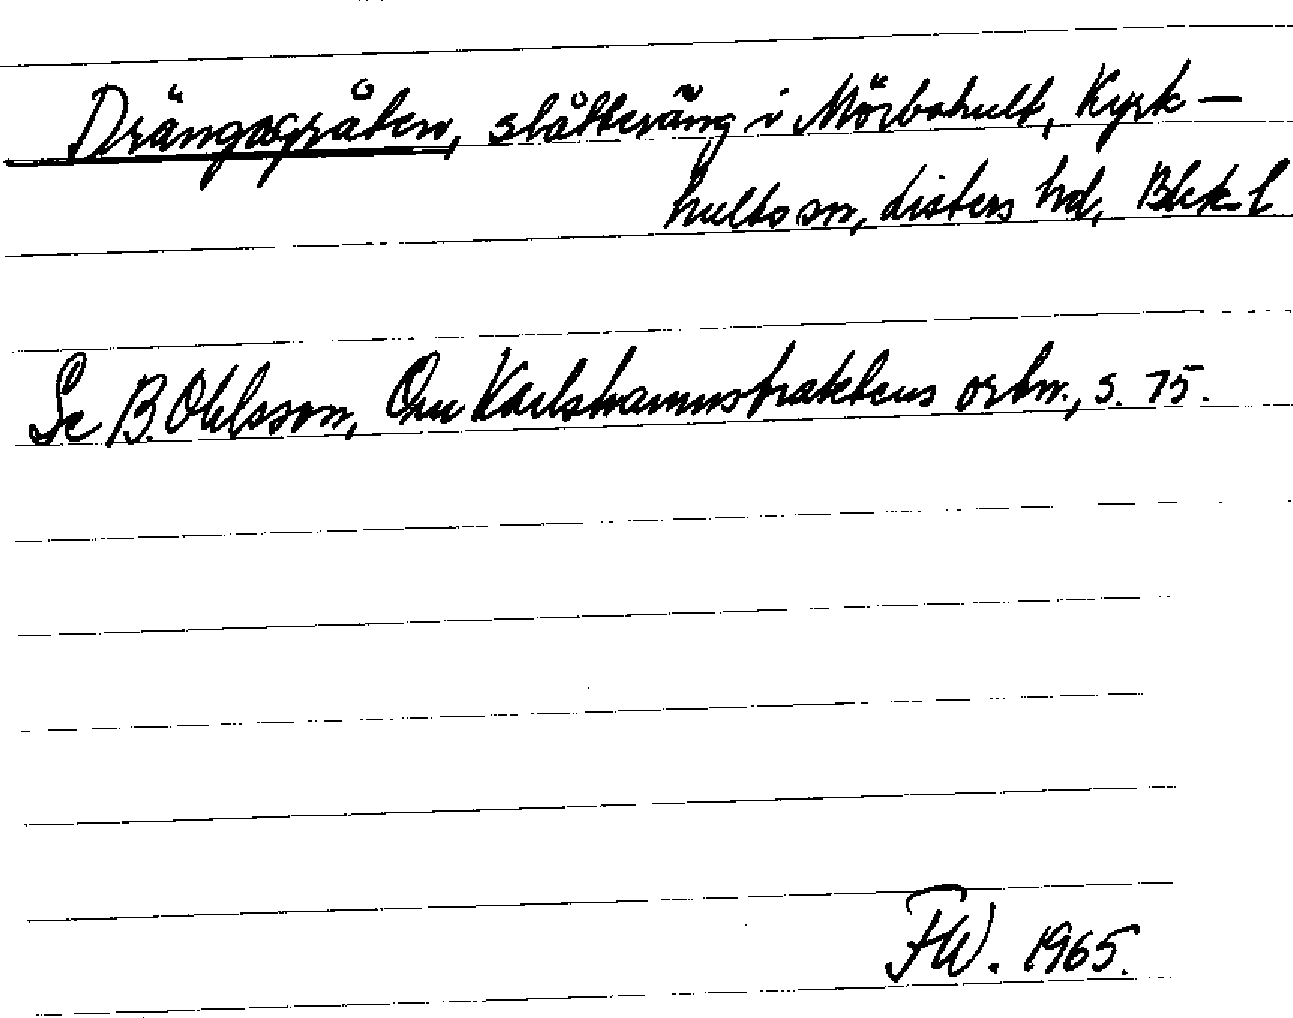 Drängagråten, slåtteräng i Mörbohult, Kyrk–
hults sn, Listers hd, Blek. l
Se B. Ohlsson, Om Karlshamnstraktens ortn., s. 75.
FW. 1965.